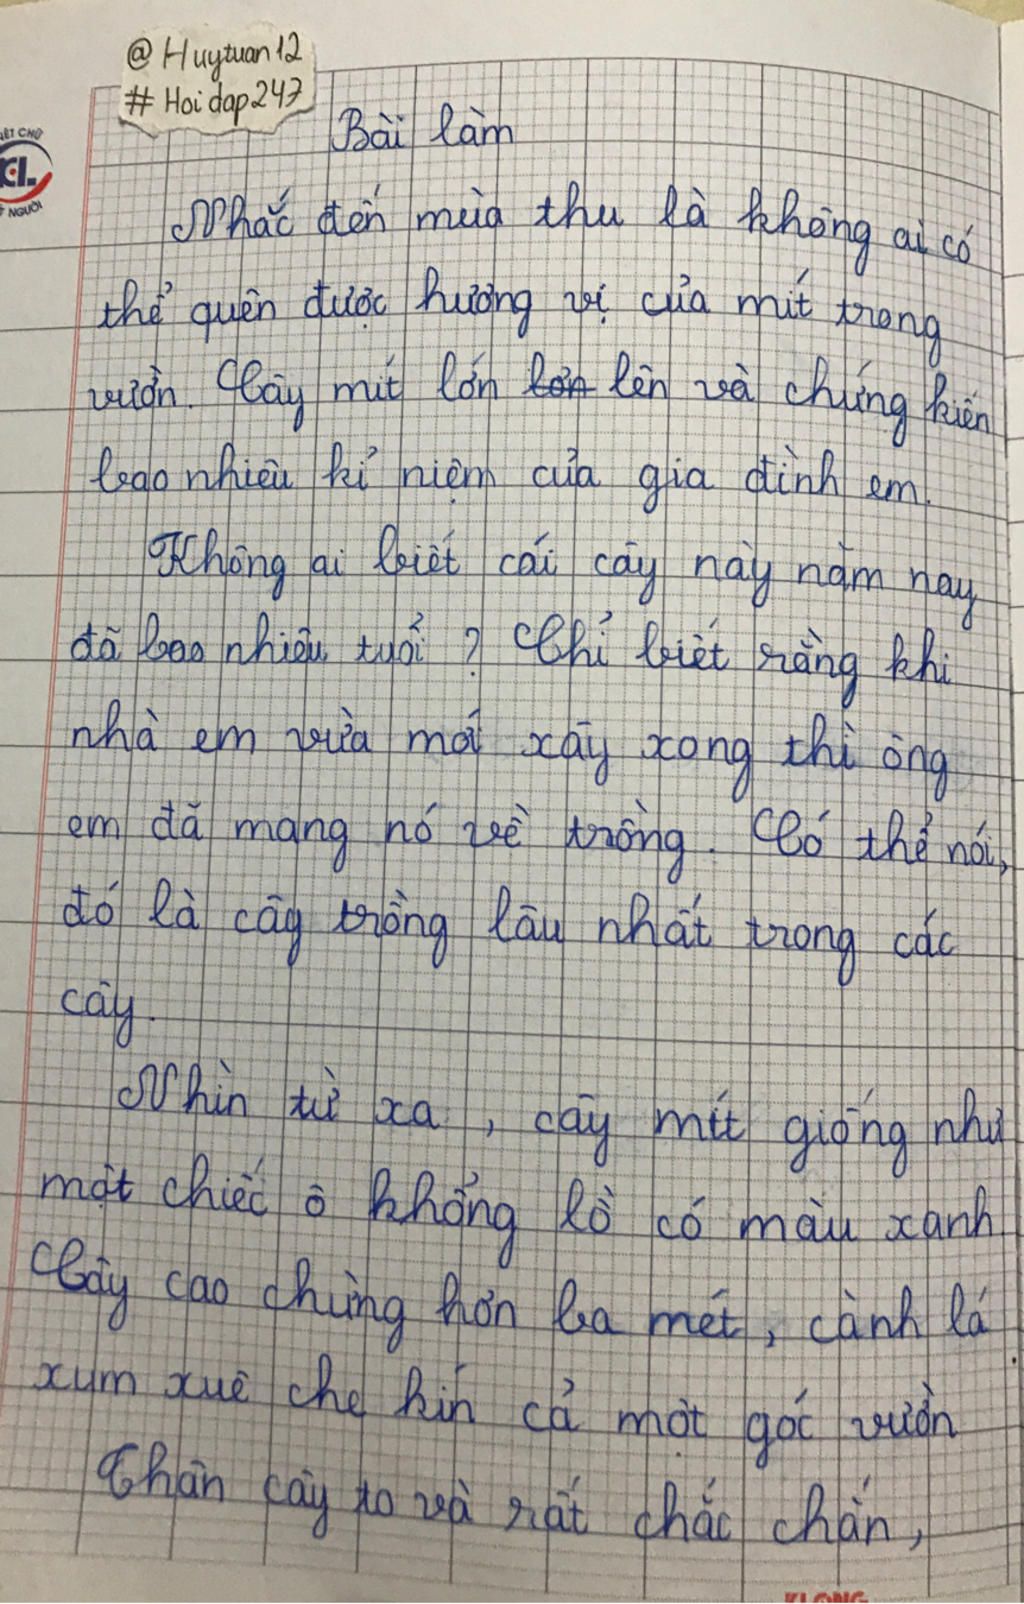 @ Huytuan12
# Hoi dap247
IẾT CHỮ
KL.
NGƯỜI
Bài làm
Nhắc đến mùa thu là không ai có
thể quên được hương vị của mít trong
vườn. Cây mít lớn lớn lên và chứng kiến
bao nhiêu kỉ niệm của gia đình em.
Không ai biết cái cây này năm nay
đã bao nhiêu tuổi ? Chỉ biết rằng khi
nhà em vừa mới xây xong thì ông
em đã mang nó về trồng. Có thể nói,
đó là cây trồng lâu nhất trong các
cây.
Nhìn từ xa, cây mít giống như
một chiếc ô khổng lồ có màu xanh
Cây cao chừng hơn ba mét, cành lá
xum xuê che kín cả một góc vườn
Thân cây to và rất chắc chắn,
KLONG